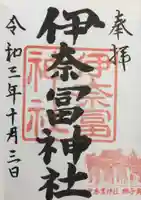 奉拝
伊奈冨神社
伊奈冨
神社
令和三年十月三日